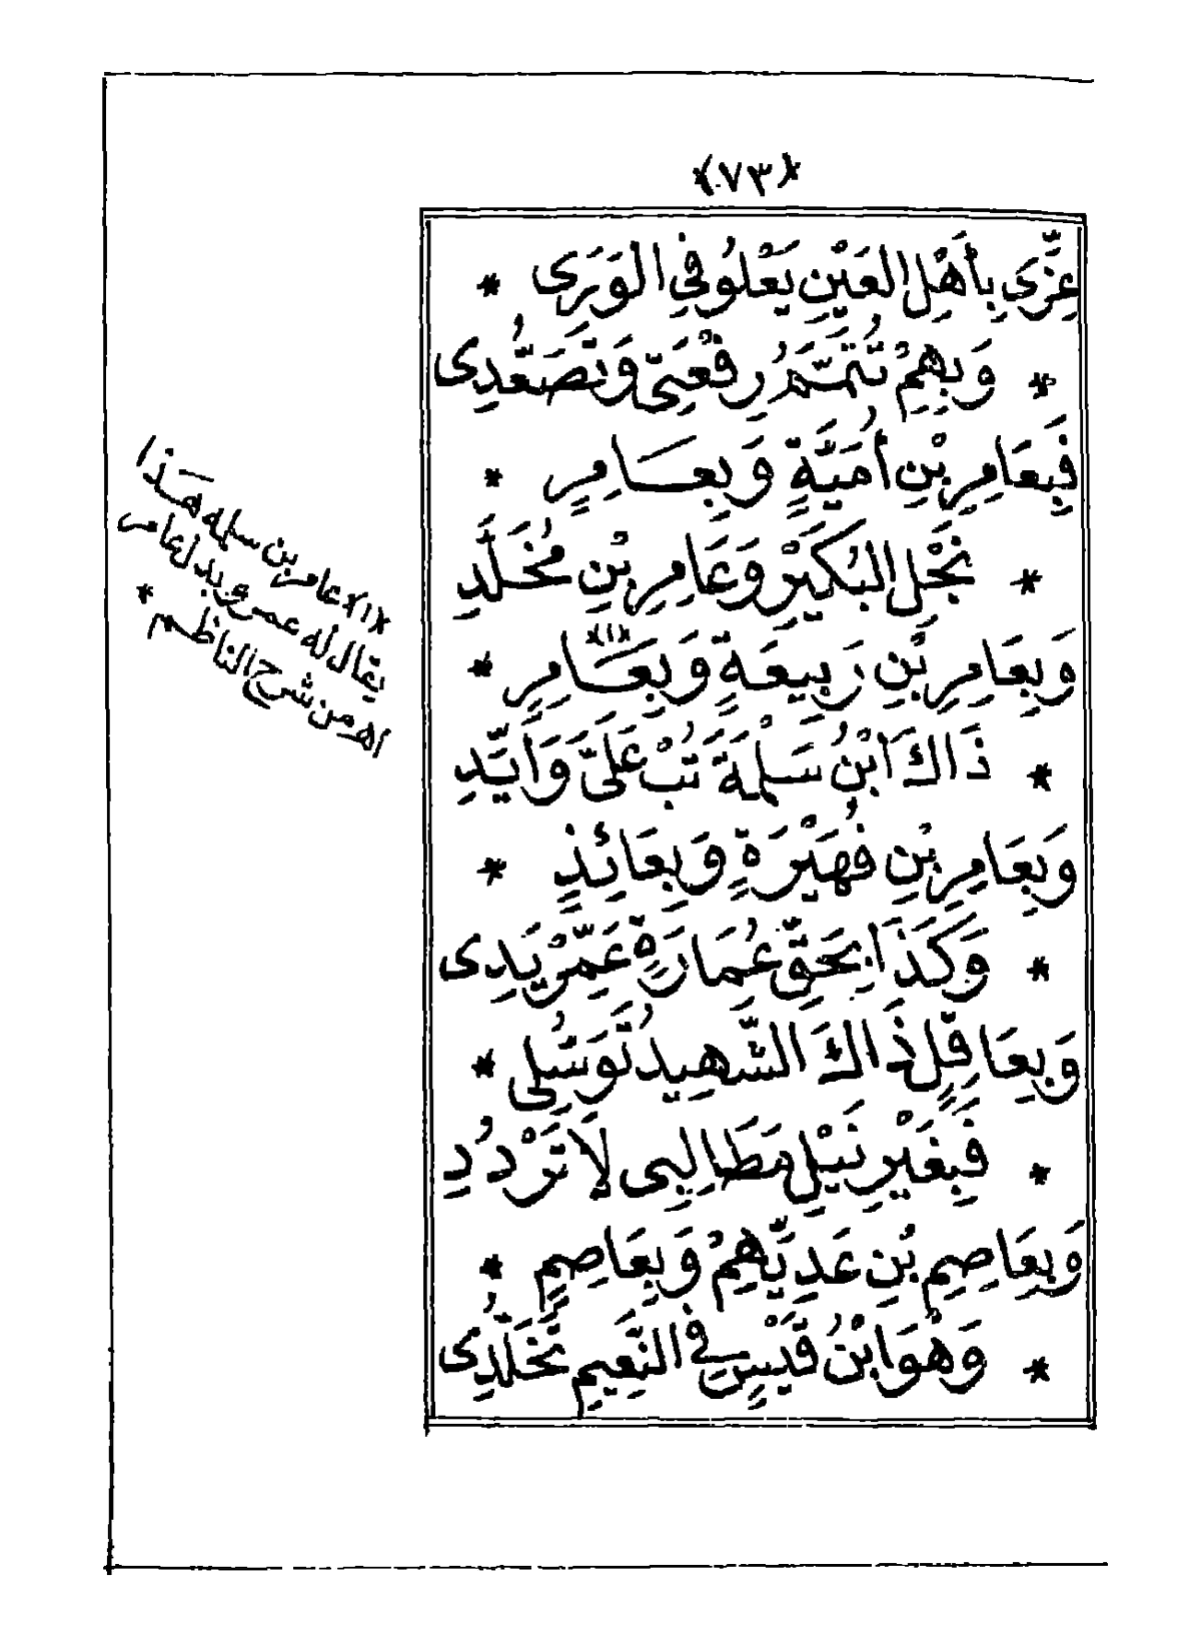 *(٧٣)*
عِزِّيَ بِأَهْلِ العَيْنِ يَعْلُو فِي الوَرَى *
* وَبِهِمْ تُتَمَّمُ رِفْعَتِي وَتَصَعُّدِي
فَبِعَامِرِ بْنِ أُمَيَّةٍ وَبِعَامِرٍ *
* نَجْلِ البُكَيْرِ وَعَامِرِ بْنِ مُخَلَّدِ
وَبِعَامِرِ بْنِ رَبِيعَةٍ وَبِعَامِرٍ *(١)* *
* ذَاكَ ابْنُ سَلْمَةَ تُبْ عَلَيَّ وَأَيِّدِ
وَبِعَامِرِ بْنِ فُهَيْرَةٍ وَبِعَائِذٍ *
* وَكَذَا بِحَقِّ عُمَارَةٍ عَمِّرْ يَدِي
وَبِعَاقِلٍ ذَاكَ الشَّهِيدُ تَوَسُّلِي *
* فَبِغَيْرِ نَيْلِ مَطَالِبِي لَا تَرْدُدِ
وَبِعَاصِمِ بْنِ عَدِيِّهِمْ وَبِعَاصِمٍ *
* وَهْوَ ابْنُ قَيْسٍ فِي النَّعِيمِ تَخَلُّدِي
*(١)* عامر بن سلمه هَذا
يقال له عمرو بدل عامر
اهـ من شرح الناظم *